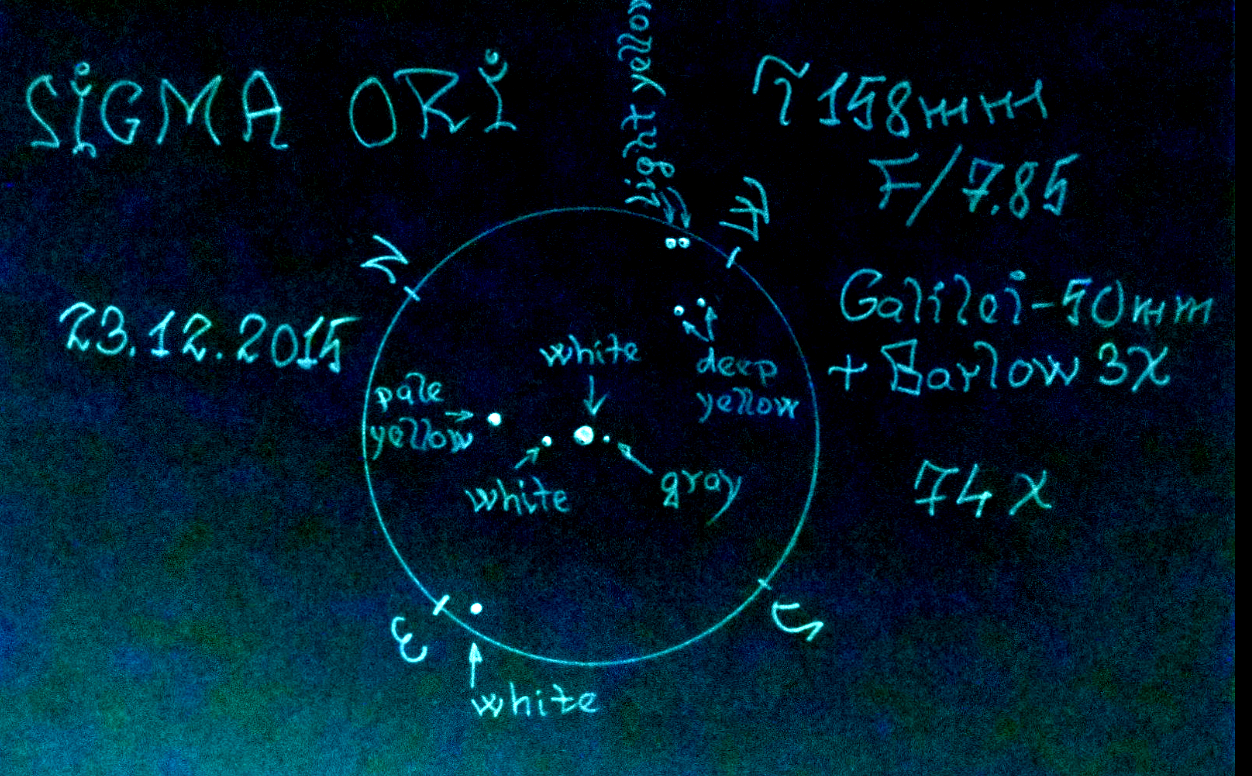 SIGMA ORI
light yellow
T 158mm
F/7.85
W
N
23.12.2015
Galilei-50mm
+ Barlow 3X
white
deep
yellow
pale
yellow
white
gray
74X
E
S
white